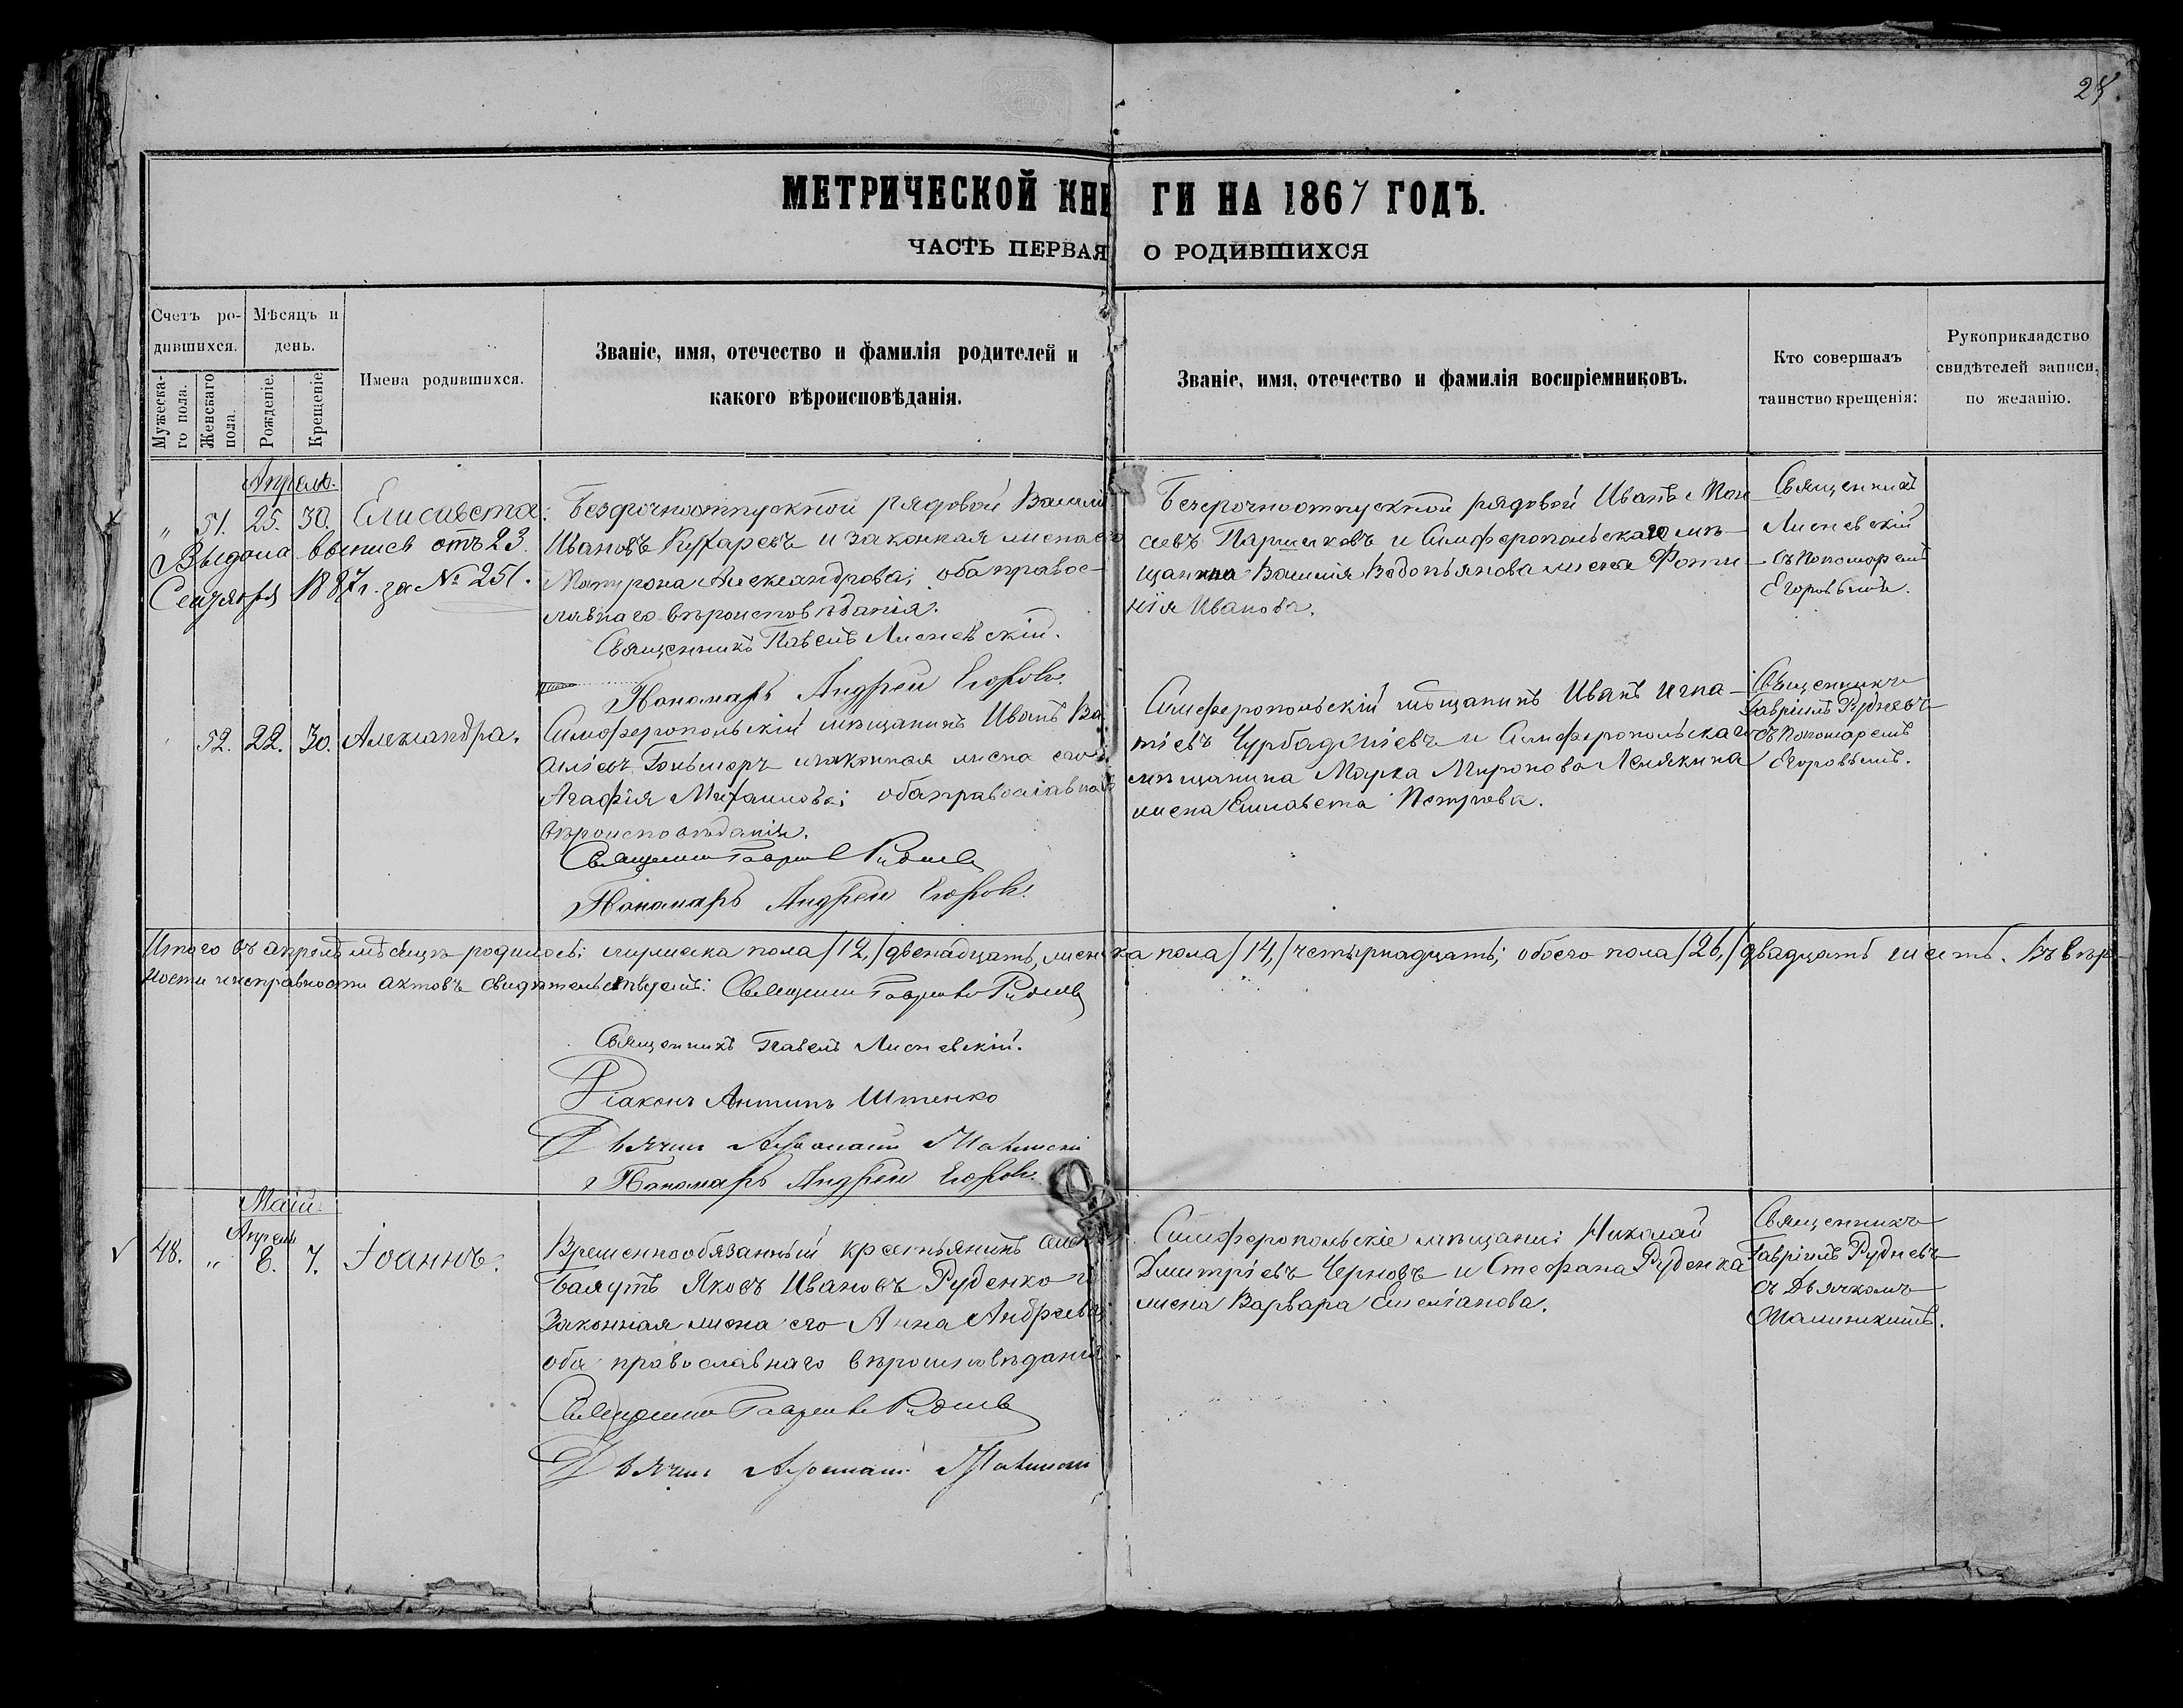 25.
МЕТРИЧЕСКОЙ КНИГИ НА 1867 ГОДЪ.
ЧАСТЬ ПЕРВАЯ О РОДИВШИХСЯ
Счетъ ро-
дившихся.
Мѣсяцъ и
день.
Мужеска-
го пола.
Женскаго
пола.
Рожденіе.
Крещеніе.
Имена родившихся.
Званіе, имя, отечество и фамилія родителей и
какого вѣроисповѣданія.
Званіе, имя, отечество и фамилія воспріемниковъ.
Кто совершалъ
таинство крещенія:
Рукоприкладство
свидѣтелей записи,
по желанію.
Апрель.
„ 51. 25. 30. Елисавета:
Выдана выпись отъ 23
Сентября 1887 г. за № 251.
Безсрочноотпускной рядовой Васили
Ивановъ Кухаревъ и законная жена его
Матрона Александрова; оба правос-
лавнаго вѣроисповѣданія.
Священникъ Павелъ Лисневскій.
Пономарь Андрей Егоровъ.
Безсрочноотпускной рядовой Иванъ Мои-
сеевъ Паршиковъ и Симферопольскаго мѣ-
щанина Василія Водопьянова жена Фоти-
нія Иванова.
Священникъ
Лисневскій
съ Пономаремъ
Егоровымъ.
52. 22. 30. Александра.
Симферопольскій мѣщанинъ Иванъ Ва
силіевъ и законная жена его
Агафія Михаилова; оба православнаго
вѣроисповѣданія.
Священникъ Гавріилъ Рудневъ
Пономарь Андрей Егоровъ.
Симферопольскій мѣщанинъ Иванъ Игна-
тіевъ и Симферопольскаго
мѣщанина Марка Миронова Лемякина
жена Елисавета Петрова.
Священникъ
Гавріилъ Рудневъ
съ Пономаремъ
Егоровымъ.
Итого въ апрелѣ мѣсяцѣ родилось: мужеска пола /12,/ двенадцать, женска пола /14,/ четырнадцать; обоего пола /26,/ двадцать шесть. Въ вѣр-
ности и исправности актовъ свидѣтельствуемъ: Священникъ Гавріилъ Рудневъ
Священникъ Павелъ Лисневскій.
Діаконъ Антипъ Штенко
Дьячекъ
Пономарь Андрей Егоровъ.
Маій.
Апрель
48. „ 8. 7. Іоаннъ.
Временнообязанный крестьянинъ
Яковъ Ивановъ Руденко и
законная жена его Анна Андреева;
оба православнаго вѣроисповѣданія.
Священникъ Гавріилъ Рудневъ
Дьячекъ
Симферопольскіе мѣщани: Николай
Дмитріевъ Черновъ и Стефана Руденка
жена Варвара Емеліанова.
Священникъ
Гавріилъ Рудневъ
съ Дьячкомъ